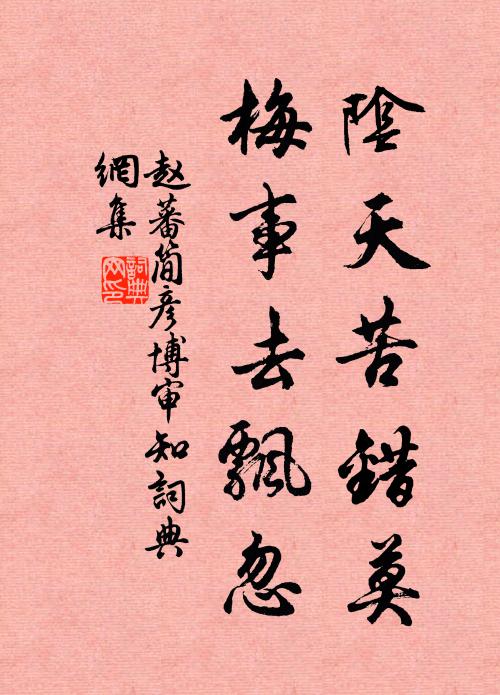 陰天苦錯莫
梅事去飄忽
赵蕃簡彦博审知詞典
網集
詞典
网印